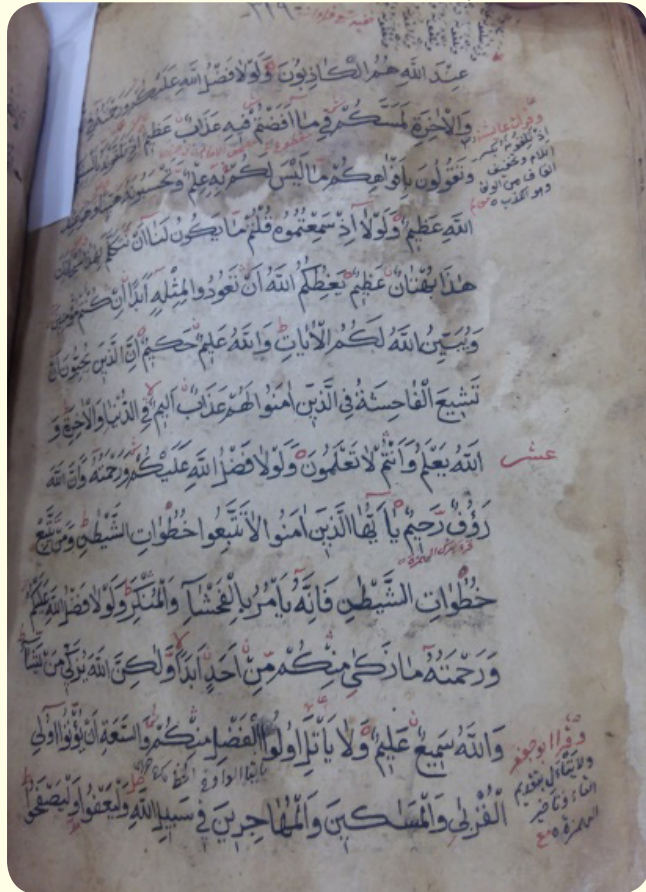 -٣٢٩-
عِنْدَ اللهِ هُمُ الْكَاذِبُونَ وَلَوْلَا فَضْلُ اللهِ عَلَيْكُمْ وَرَحْمَتُهُ فِي
وَالْاٰخِرَةِ لَمَسَّكُمْ فِي مَا اَفَضْتُمْ فِيهِ عَذَابٌ عَظِيمٌ
وَتَقُولُونَ بِاَفْوَاهِكُمْ مَا لَيْسَ لَكُمْ بِهِ عِلْمٌ وَتَحْسَبُونَهُ هَيِّنًا وَهُوَ عِنْدَ
اللهِ عَظِيمٌ وَلَوْلَا اِذْ سَمِعْتُمُوهُ قُلْتُمْ مَا يَكُونُ لَنَا اَنْ نَتَكَلَّمَ بِهٰذَا سُبْحَانَكَ
هٰذَا بُهْتَانٌ عَظِيمٌ يَعِظُكُمُ اللهُ اَنْ تَعُودُوا لِمِثْلِهِ اَبَدًا اِنْ كُنْتُمْ مُؤْمِنِينَ
وَيُبَيِّنُ اللهُ لَكُمُ الْاٰيَاتِ وَاللهُ عَلِيمٌ حَكِيمٌ اِنَّ الَّذِينَ يُحِبُّونَ اَنْ
تَشِيعَ الْفَاحِشَةُ فِي الَّذِينَ اٰمَنُوا لَهُمْ عَذَابٌ اَلِيمٌ فِي الدُّنْيَا وَالْاٰخِرَةِ وَ
اللهُ يَعْلَمُ وَاَنْتُمْ لَا تَعْلَمُونَ وَلَوْلَا فَضْلُ اللهِ عَلَيْكُمْ وَرَحْمَتُهُ وَاَنَّ اللهَ
عشر
رَؤُفٌ رَحِيمٌ يَا اَيُّهَا الَّذِينَ اٰمَنُوا لَا تَتَّبِعُوا خُطُوَاتِ الشَّيْطٰنِ وَمَنْ يَتَّبِعْ
خُطُوَاتِ الشَّيْطٰنِ فَاِنَّهُ يَاْمُرُ بِالْفَحْشَآءِ وَالْمُنْكَرِ وَلَوْلَا فَضْلُ اللهِ عَلَيْكُمْ
وَرَحْمَتُهُ مَا زَكٰى مِنْكُمْ مِنْ اَحَدٍ اَبَدًا وَلٰكِنَّ اللهَ يُزَكِّي مَنْ يَشَآءُ
وَاللهُ سَمِيعٌ عَلِيمٌ وَلَا يَاْتَلِ اُولُوا الْفَضْلِ مِنْكُمْ وَالسَّعَةِ اَنْ يُؤْتُوا اُولِي
الْقُرْبٰى وَالْمَسٰكِينَ وَالْمُهَاجِرِينَ فِي سَبِيلِ اللهِ وَلْيَعْفُوا وَلْيَصْفَحُوا
وقرأ ابو جعفر
ولا يتأل بتقديم
التاء وتاخير
الهمزة